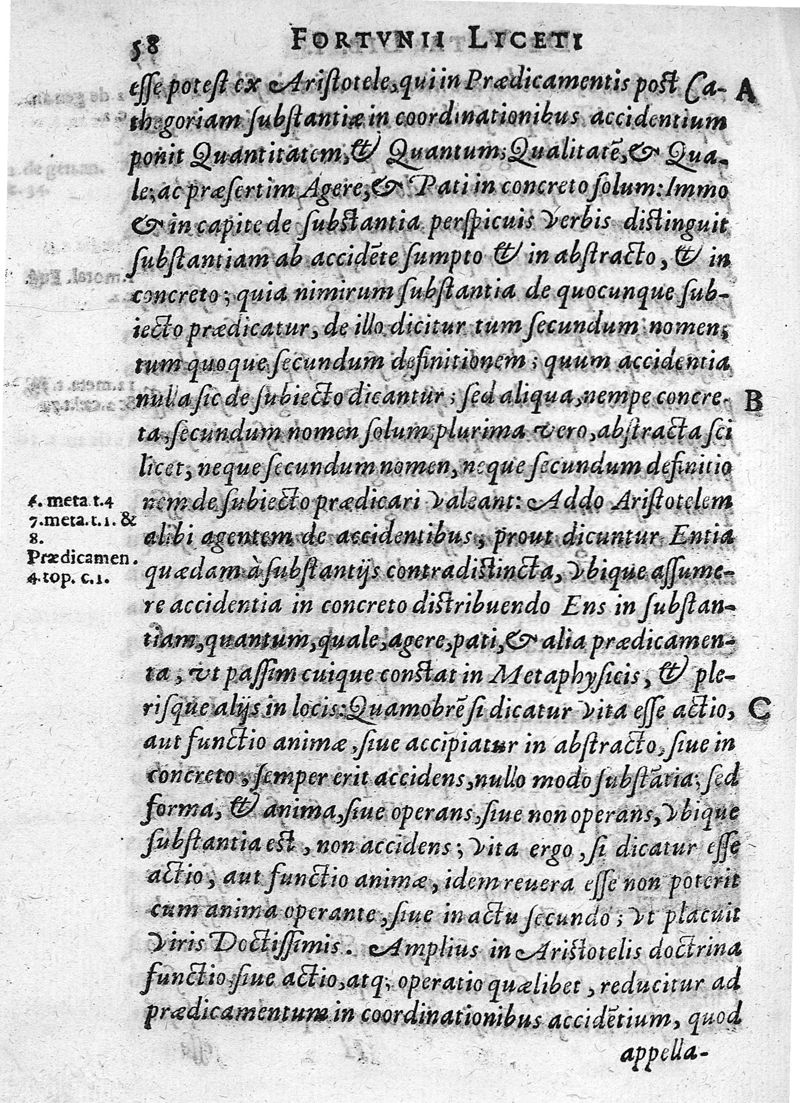 58 FORTVNII LICETI
esse potest ex Aristotele, qui in Prædicamentis post Ca- A
thegoriam substantiæ in coordinationibus accidentium
ponit Quantitatem, & Quantum; Qualitatẽ, & Qua-
le; ac præsertim Agere, & Pati in concreto solum: Immo
& in capite de substantia perspicuis verbis distinguit
substantiam ab accidẽte sumpto & in abstracto, & in
concreto; quia nimirum substantia de quocunque sub-
iecto prædicatur, de illo dicitur tum secundum nomen,
tum quoque secundum definitionem; quum accidentia
nulla sic de subiecto dicantur; sed aliqua, nempe concre- B
ta, secundum nomen solum; plurima vero, abstracta sci
licet, neque secundum nomen, neque secundum definitio
4. meta. t. 4 nem de subiecto prædicari valeant: Addo Aristotelem
7. meta. t. 1. & alibi agentem de accidentibus, prout dicuntur Entia
8.
Prædicamen. quædam à substantijs contradistincta, vbique assume-
4. top. c. 1.
re accidentia in concreto distribuendo Ens in substan-
tiam, quantum, quale, agere, pati, & alia prædicamen-
ta, vt passim cuique constat in Metaphysicis, & ple-
risque alijs in locis: Quamobrẽ si dicatur vita esse actio, C
aut functio animæ, siue accipiatur in abstracto, siue in
concreto, semper erit accidens, nullo modo substãtia; sed
forma, & anima, siue operans, siue non operans, vbique
substantia est, non accidens; vita ergo, si dicatur esse
actio, aut functio animæ, idem reuera esse non poterit
cum anima operante, siue in actu secundo; vt placuit
viris Doctissimis. Amplius in Aristotelis doctrina
functio, siue actio, atq; operatio quælibet, reducitur ad
prædicamentum in coordinationibus accidẽtium, quod
appella-